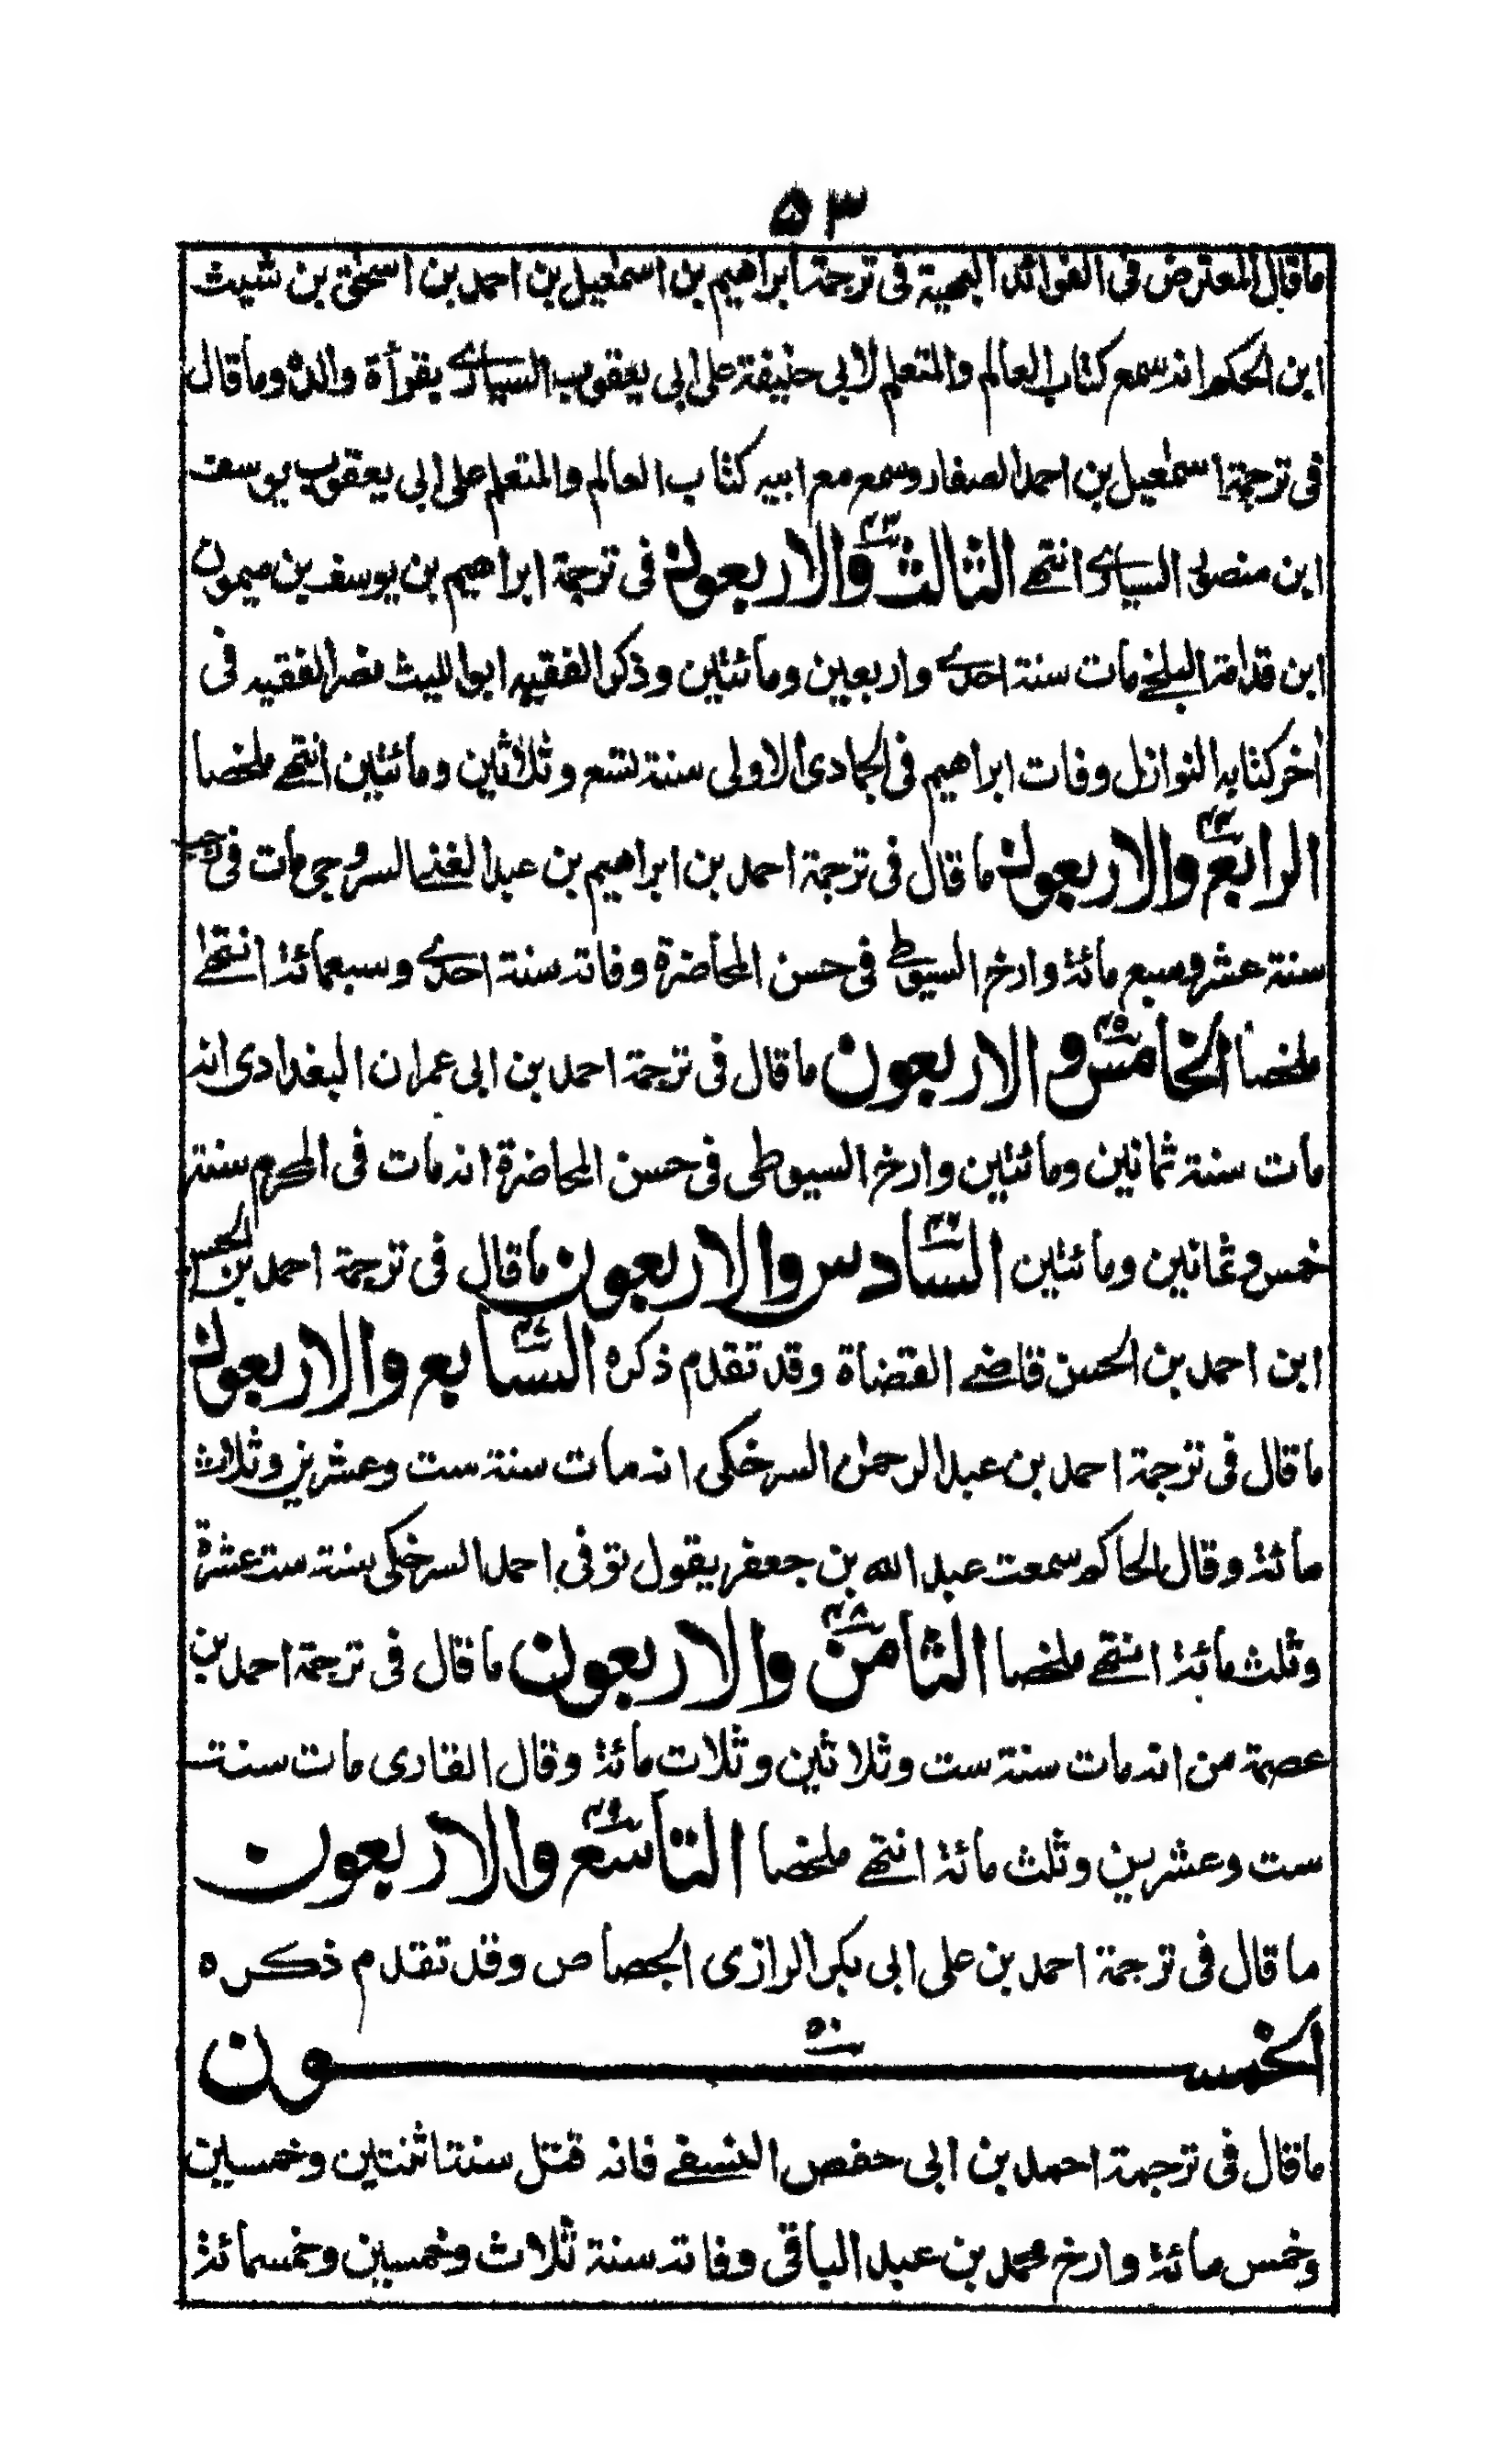 ٥٣
ما قال المعترض فى الفوائد البهية فى ترجمة ابراهيم بن اسمٰعيل بن احمد بن اسحٰق بن شيث
ابن الحكم انه سمع كتاب العالم والمتعلم لابى حنيفة على ابى يعقوب السيارى بقرأة والده وما قال
فى ترجمة اسمٰعيل بن احمد الصفار وسمع مع ابيه كتاب العالم والمتعلم على ابى يعقوب يوسف
ابن منصور السيارى انتهے الثالث ٤٣ والاربعون فى ترجمة ابراهيم بن يوسف بن ميمون
ابن قدامة البلخے مات سنة احدے واربعين ومائتين وذكر الفقيه ابو الليث نصر الفقيه فى
اٰخر كتابه النوازل وفات ابراهيم فى الجمادى الاولى سنة تسع وثلاثين ومائتين انتهے ملخصا
الرابع ٤٤ والاربعون ما قال فى ترجمة احمد بن ابراهيم بن عبد الغنے السروجى مات فى
سنة عشر وسبع مائة وارخ السيوطے فى حسن المحاضرة وفاته سنة احدے وسبعمائة انتهے
ملخصا الخامس ٤٥ والاربعون ما قال فى ترجمة احمد بن ابى عمران البغدادى انه
مات سنة ثمانين ومائتين وارخ السيوطى فى حسن المحاضرة انه مات فى المحرم سنة
خمس وثمانين ومائتين السادس ٤٦ والاربعون ما قال فى ترجمة احمد بن الحسن
ابن احمد بن الحسن قاضے القضاة وقد تقدم ذكره السابع ٤٧ والاربعون
ما قال فى ترجمة احمد بن عبد الرحمٰن السرخكى انه مات سنة ست وعشرين وثلاث
مائة وقال الحاكم سمعت عبد الله بن جعفر يقول توفى احمد السرخكى سنة ست عشرة
وثلث مائة انتهے ملخصا الثامن ٤٨ والاربعون ما قال فى ترجمة احمد بن
عصمة من انه مات سنة ست وثلاثين وثلاث مائة وقال القارى مات سنة
ست وعشرين وثلث مائة انتهے ملخصا التاسع ٤٩ والاربعون
ما قال فى ترجمة احمد بن على ابى بكر الرازى الجصاص وقد تقدم ذكره
الخمسون ٥٠
ما قال فى ترجمة احمد بن ابى حفص النسفے فانه قتل سنة اثنتين وخمسين
وخمس مائة وارخ محمد بن عبد الباقى وفاته سنة ثلاث وخمسين وخمسمائة